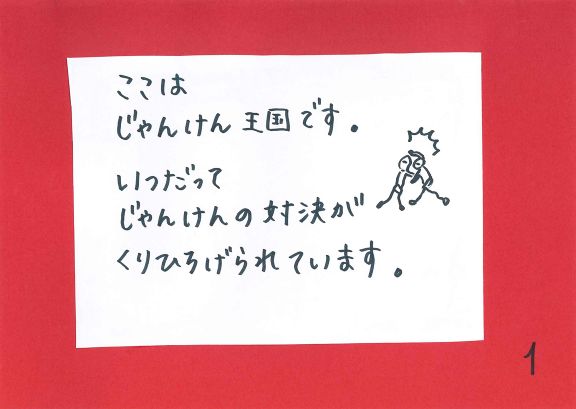 ここは
じゃんけん王国です。
いつだって
じゃんけんの対決が
くりひろげられています。
1